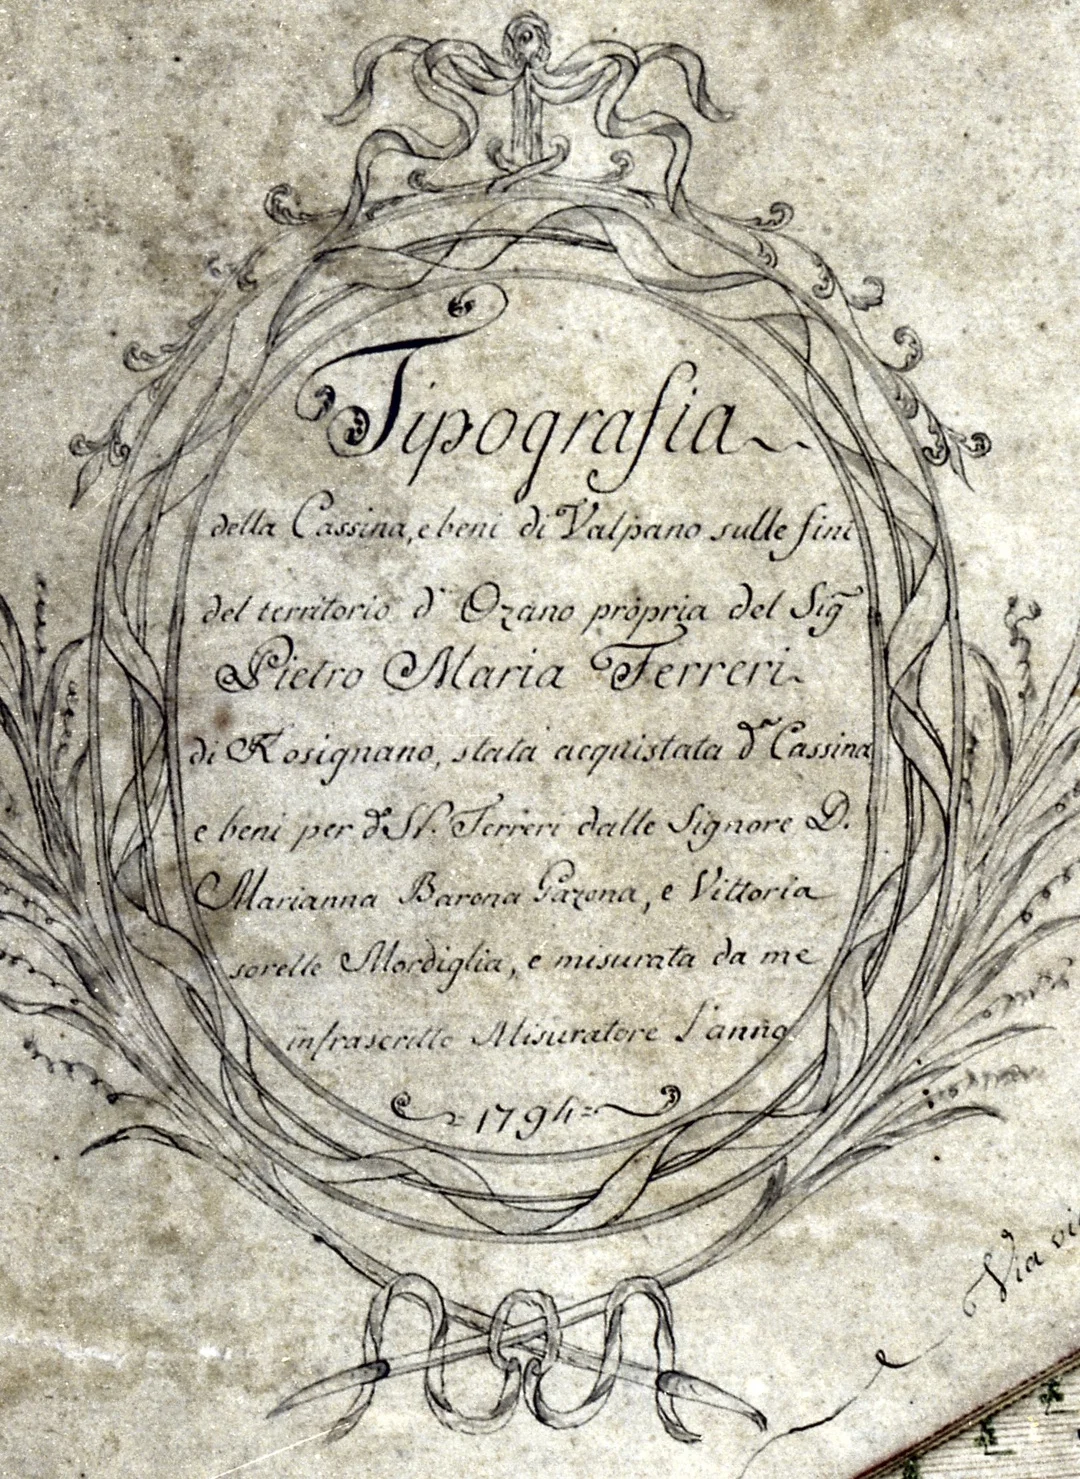 Tipografia
della Cassina, e beni di Valpano sulle fini
del territorio d' Ozano propria del Sig.
Pietro Maria Ferreri
di Rosignano, stata acquistata d.ª Cassina
e beni per d.º Sr. Ferreri dalle Signore D.
Marianna Barona Gazona, e Vittoria
sorelle Mordiglia, e misurata da me
infrascritto Misuratore l'anno
=1794=
Via vi